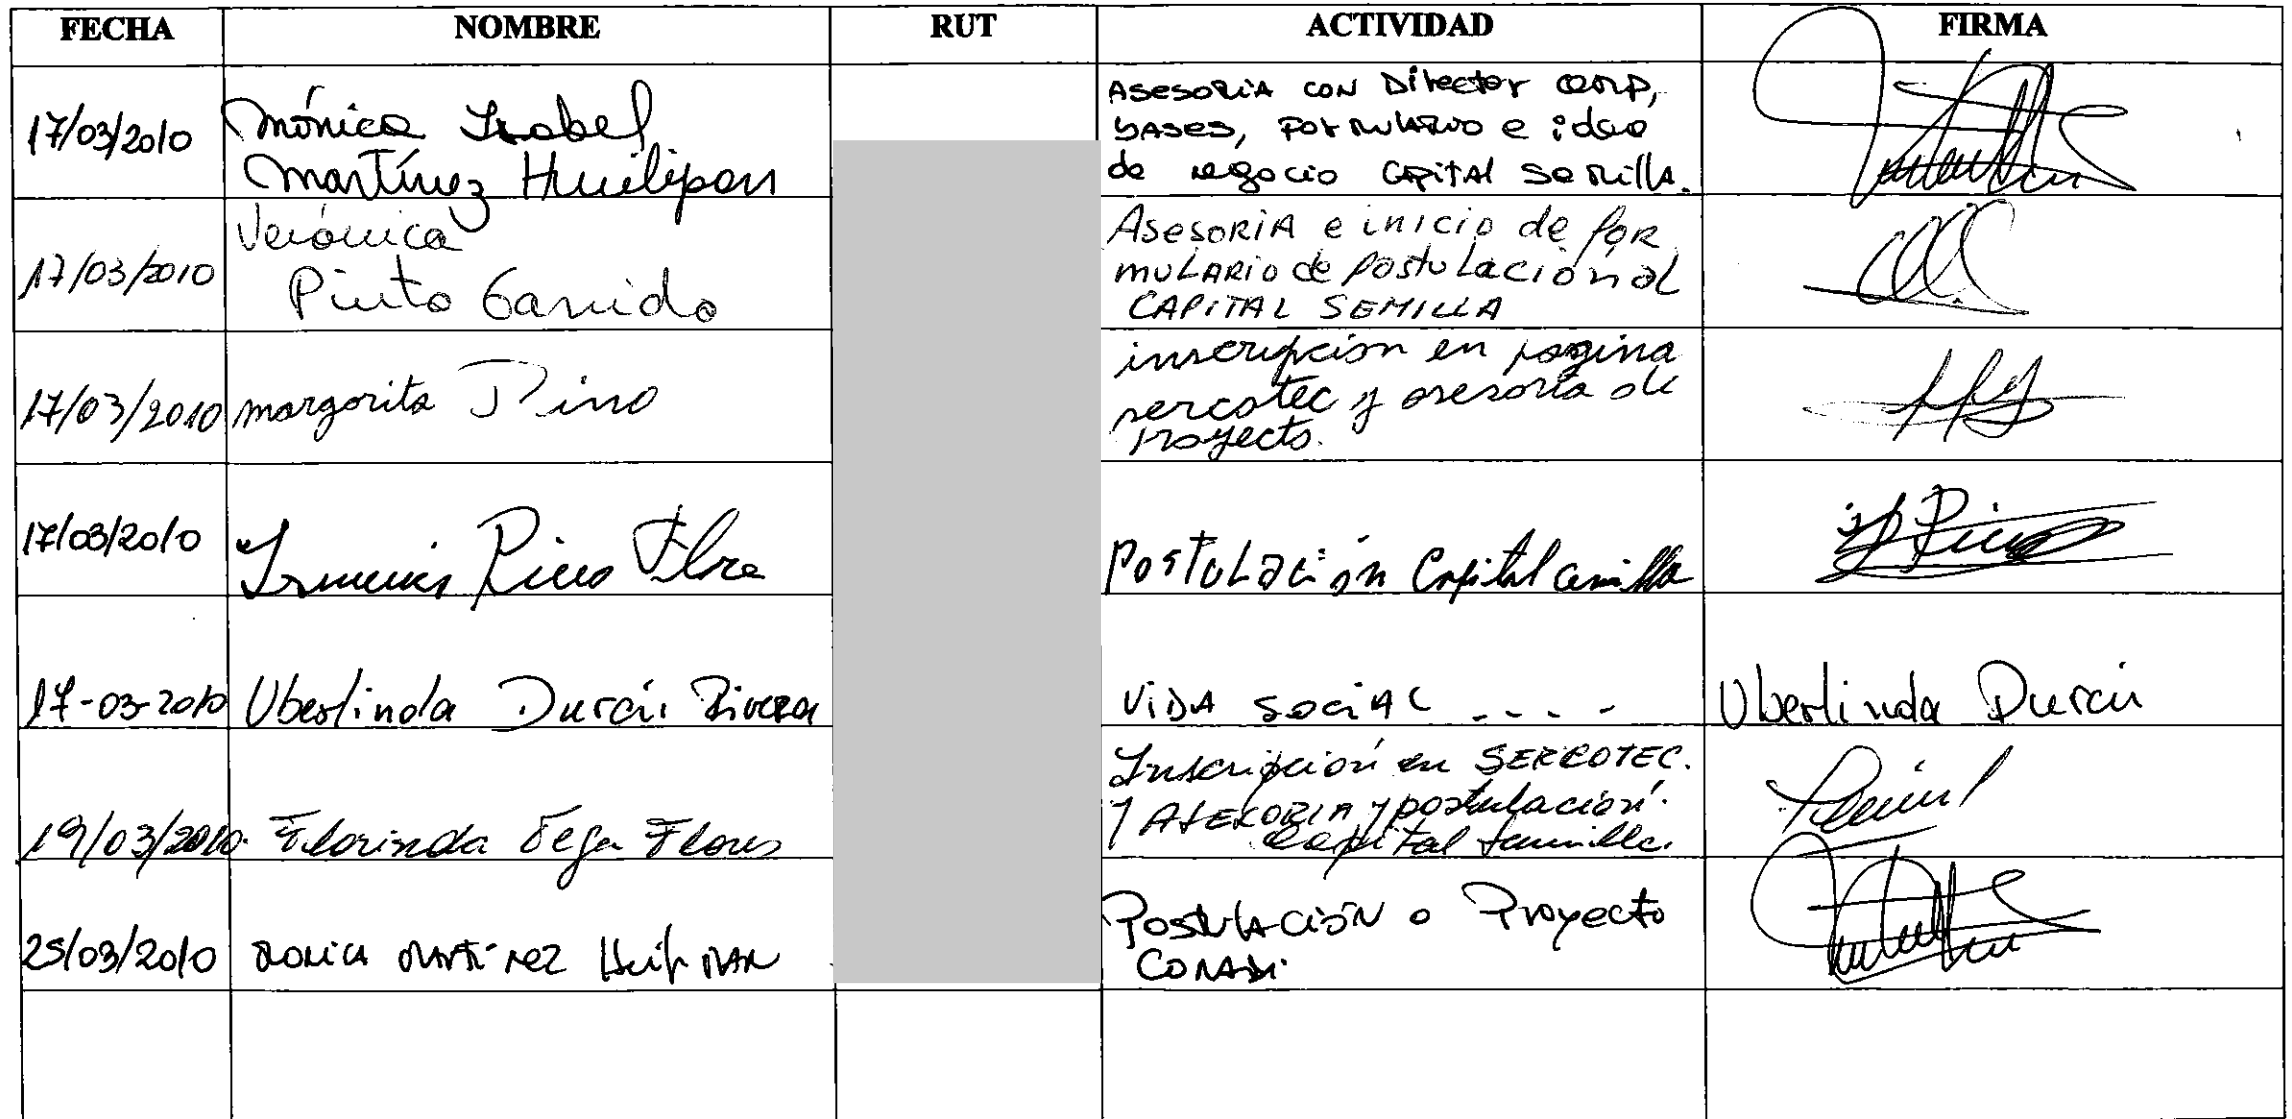 FECHA NOMBRE RUT ACTIVIDAD FIRMA
17/03/2010 Mónica Isabel
Martínez Huilipan
Asesoria con Director
bases, formulario e idea
de negocio Capital Semilla.
17/03/2010 Verónica
Pinto Garrido
Asesoria e inicio de for
mulario de postulación al
CAPITAL SEMILLA
17/03/2010 margarita Pino
inscripción en pagina
sercotec y asesoria de
proyecto.
17/03/2010 Postulación Capital
17-03-2010 Uberlinda Durán Rivera VIDA SOCIAL .... Uberlinda Durán
19/03/2010. Florinda Flores
Inscripción en SERCOTEC.
y ASESORIA y postulación.
capital
25/03/2010 Monica Martinez
Postulación a Proyecto
CONADI.